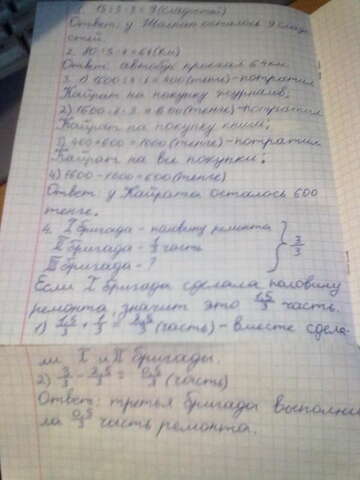 1. 15:5·3=9 (сладостей)
Ответ: у Жаннат осталось 9 сладо-
стей.
2. 80:5·4=64 (км)
Ответ: автобус проехал 64 км.
3. 1) 1600:4·1=400 (тенге) - потратил
Кайрат на покупку журналов;
2) 1600:8·3=600 (тенге) - потратил
Кайрат на покупку книг;
3) 400+600=1000 (тенге) - потратил
Кайрат на все покупки;
4) 1600-1000=600 (тенге)
Ответ: у Кайрата осталось 600
тенге.
4. I бригада - половину ремонта
II бригада - 1/3 часть } 3/3
III бригада - ?
Если I бригада сделала половину
ремонта, значит это 1,5/3 часть.
1) 1,5/3 + 1/3 = 2,5/3 (часть) - вместе сдела-
ли I и II бригады.
2) 3/3 - 2,5/3 = 0,5/3 (часть)
Ответ: третья бригада выполни-
ла 0,5/3 часть ремонта.